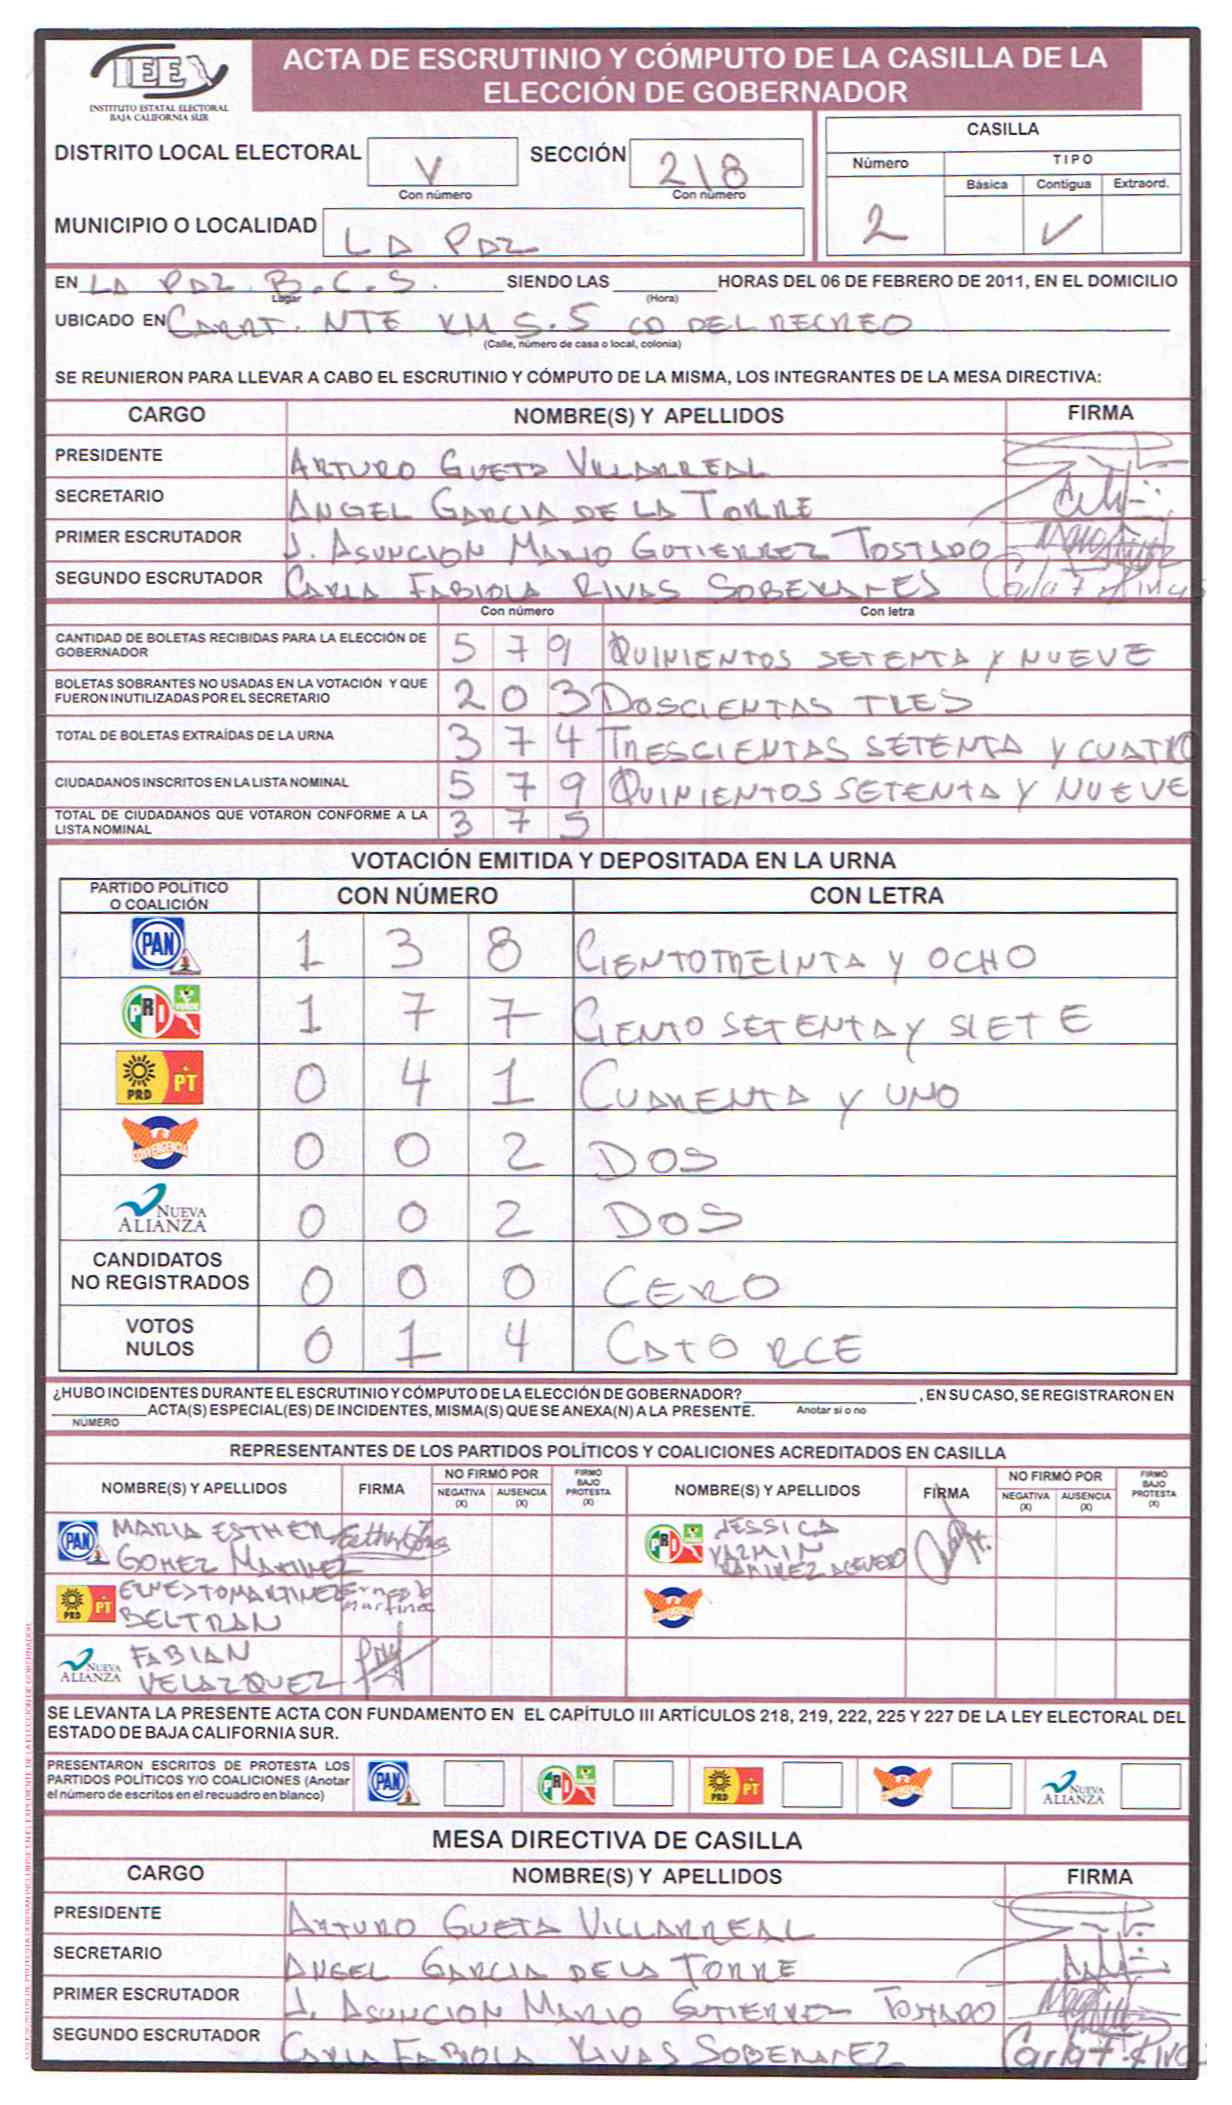 IEEX
INSTITUTO ESTATAL ELECTORAL
BAJA CALIFORNIA SUR
ACTA DE ESCRUTINIO Y CÓMPUTO DE LA CASILLA DE LA
ELECCIÓN DE GOBERNADOR
DISTRITO LOCAL ELECTORAL V SECCIÓN 218
Con número Con número
MUNICIPIO O LOCALIDAD LA PAZ
CASILLA
Número TIPO
Básica Contigua Extraord.
2 ✓
EN LA PAZ. B.C.S. SIENDO LAS HORAS DEL 06 DE FEBRERO DE 2011, EN EL DOMICILIO
Lugar (Hora)
UBICADO EN CARRT. NTE KM 5.5 CD DEL RECREO
(Calle, número de casa o local, colonia)
SE REUNIERON PARA LLEVAR A CABO EL ESCRUTINIO Y CÓMPUTO DE LA MISMA, LOS INTEGRANTES DE LA MESA DIRECTIVA:
CARGO NOMBRE(S) Y APELLIDOS FIRMA
PRESIDENTE ARTURO GUETA VILLARREAL
SECRETARIO ANGEL GARCIA DE LA TORRE
PRIMER ESCRUTADOR J. ASUNCION MARIO GUTIERREZ TOSTADO
SEGUNDO ESCRUTADOR CARLA FABIOLA RIVAS SOBERANES Carla F. Rivas
Con número Con letra
CANTIDAD DE BOLETAS RECIBIDAS PARA LA ELECCIÓN DE
GOBERNADOR 579 QUINIENTOS SETENTA Y NUEVE
BOLETAS SOBRANTES NO USADAS EN LA VOTACIÓN Y QUE
FUERON INUTILIZADAS POR EL SECRETARIO 203 DOSCIENTAS TRES
TOTAL DE BOLETAS EXTRAÍDAS DE LA URNA 374 TRESCIENTAS SETENTA Y CUATRO
CIUDADANOS INSCRITOS EN LA LISTA NOMINAL 579 QUINIENTOS SETENTA Y NUEVE
TOTAL DE CIUDADANOS QUE VOTARON CONFORME A LA
LISTA NOMINAL 375
VOTACIÓN EMITIDA Y DEPOSITADA EN LA URNA
PARTIDO POLÍTICO
O COALICIÓN CON NÚMERO CON LETRA
PAN 1 3 8 CIENTOTREINTA Y OCHO
PRI VERDE 1 7 7 CIENTO SETENTA Y SIETE
PRD PT 0 4 1 CUARENTA Y UNO
CONVERGENCIA 0 0 2 DOS
NUEVA ALIANZA 0 0 2 DOS
CANDIDATOS
NO REGISTRADOS 0 0 0 CERO
VOTOS
NULOS 0 1 4 CATORCE
¿HUBO INCIDENTES DURANTE EL ESCRUTINIO Y CÓMPUTO DE LA ELECCIÓN DE GOBERNADOR? , EN SU CASO, SE REGISTRARON EN
ACTA(S) ESPECIAL(ES) DE INCIDENTES, MISMA(S) QUE SE ANEXA(N) A LA PRESENTE. Anotar si o no
NÚMERO
REPRESENTANTES DE LOS PARTIDOS POLÍTICOS Y COALICIONES ACREDITADOS EN CASILLA
NOMBRE(S) Y APELLIDOS FIRMA NO FIRMÓ POR NEGATIVA (X) AUSENCIA (X) FIRMÓ BAJO PROTESTA (X) NOMBRE(S) Y APELLIDOS FIRMA NO FIRMÓ POR NEGATIVA (X) AUSENCIA (X) FIRMÓ BAJO PROTESTA (X)
PAN MARIA ESTHER
GOMEZ MARTINEZ
PRI JESSICA
YAZMIN
RAMIREZ ACEVEDO
PRD PT ERNESTO MARTINEZ
BELTRAN
Ernesto
Martinez
NUEVA ALIANZA FABIAN
VELAZQUEZ
SE LEVANTA LA PRESENTE ACTA CON FUNDAMENTO EN EL CAPÍTULO III ARTÍCULOS 218, 219, 222, 225 Y 227 DE LA LEY ELECTORAL DEL
ESTADO DE BAJA CALIFORNIA SUR.
PRESENTARON ESCRITOS DE PROTESTA LOS
PARTIDOS POLÍTICOS Y/O COALICIONES (Anotar
el número de escritos en el recuadro en blanco)
PAN PRI PRD PT NUEVA ALIANZA
MESA DIRECTIVA DE CASILLA
CARGO NOMBRE(S) Y APELLIDOS FIRMA
PRESIDENTE ARTURO GUETA VILLARREAL
SECRETARIO ANGEL GARCIA DE LA TORRE
PRIMER ESCRUTADOR J. ASUNCION MARIO GUTIERREZ TOSTADO
SEGUNDO ESCRUTADOR CARLA FABIOLA RIVAS SOBERANEZ Carla F. Rivas